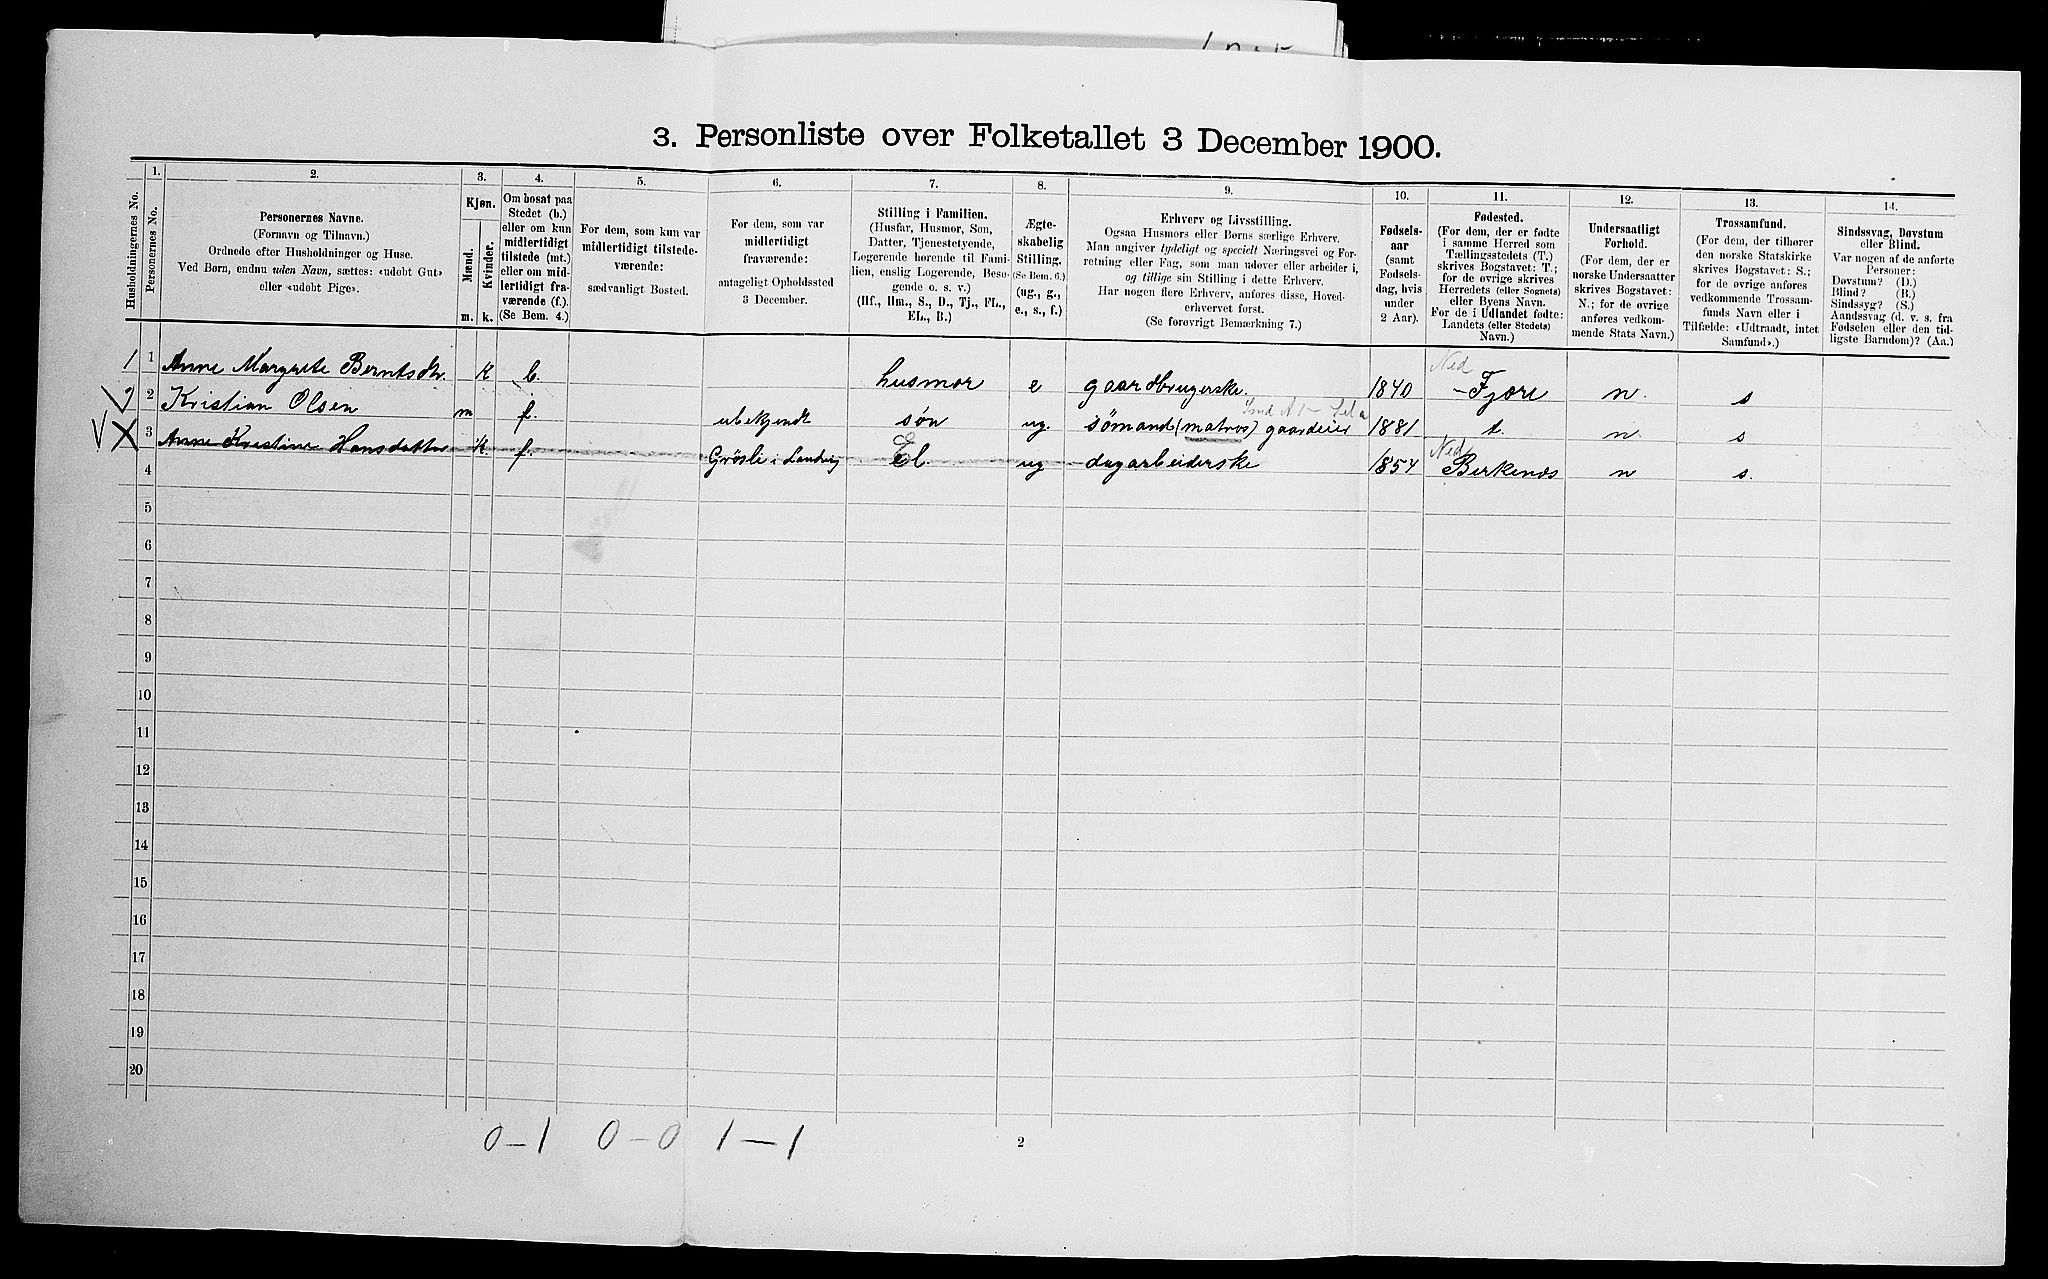 3. Personliste over Folketallet 3 December 1900.
Husholdningernes No.
1.
Personernes No.
2.
Personernes Navne.
(Fornavn og Tilnavn.)
Ordnede efter Husholdninger og Huse.
Ved Børn, endnu uden Navn, sættes: «udøbt Gut»
eller «udøbt Pige».
3.
Kjøn.
Mænd.
Kvinder.
m. k.
4.
Om bosat paa
Stedet (b.)
eller om kun
midlertidigt
tilstede (mt.)
eller om mid-
lertidigt fra-
værende (f.).
(Se Bem. 4.)
5.
For dem, som kun var
midlertidigt tilstede-
værende:
sædvanligt Bosted.
6.
For dem, som var
midlertidigt
fraværende:
antageligt Opholdssted
3 December.
7.
Stilling i Familien.
(Husfar, Husmor, Søn,
Datter, Tjenestetyende,
Logerende hørende til Fami-
lien, enslig Logerende, Besø-
gende o. s. v.)
(Hf., Hm., S., D., Tj., FL.,
EL., B.)
8.
Ægte-
skabelig
Stilling.
(Se Bem. 6.)
(ug., g.,
e., s., f.)
9.
Erhverv og Livsstilling.
Ogsaa Husmors eller Børns særlige Erhverv.
Man angiver tydeligt og specielt Næringsvei og For-
retning eller Fag, som man udøver eller arbeider i,
og tillige sin Stilling i dette Erhverv.
Har nogen flere Erhverv, anføres disse, Hoved-
erhvervet først.
(Se forøvrigt Bemærkning 7.)
10.
Fødsels-
aar
(samt
Fødsels-
dag, hvis
under
2 Aar).
11.
Fødested.
(For dem, der er fødte
i samme Herred som
Tællingsstedets (T.)
skrives Bogstavet: T.;
for de øvrige skrives
Herredets (eller Sognets)
eller Byens Navn.
For de i Udlandet fødte:
Landets (eller Stedets)
Navn.)
12.
Undersaatligt
Forhold.
(For dem, der er
norske Undersaatter
skrives Bogstavet:
N.; for de øvrige
anføres vedkom-
mende Stats Navn.)
13.
Trossamfund.
(For dem, der tilhører
den norske Statskirke
skrives Bogstavet: S.;
for de øvrige anføres
vedkommende Trossam-
funds Navn eller i
Tilfælde: «Udtraadt, intet
Samfund».)
14.
Sindssvag, Døvstum
eller Blind.
Var nogen af de anførte
Personer:
Døvstum? (D.)
Blind? (B.)
Sindssyg? (S.)
Aandssvag (d. v. s. fra
Fødselen eller den tid-
ligste Barndom)? (Aa.)
1 1 Anne Margrete Berntsdtr. k b. husmor e gaardbrugerske. 1840 Ned Fjære n. s
2 Kristian Olsen m f. ubekjendt søn ug. sømand (matros) gaardeier 1881 t. n. s
3 Anne Kristine Hansdatter k f. Grøsle i Landvig El. ug dagarbeiderske 1854 Ned Birkenæs n s.
4
5
6
7
8
9
10
11
12
13
14
15
16
17
18
19
20
0–1 0–0 1–1
2